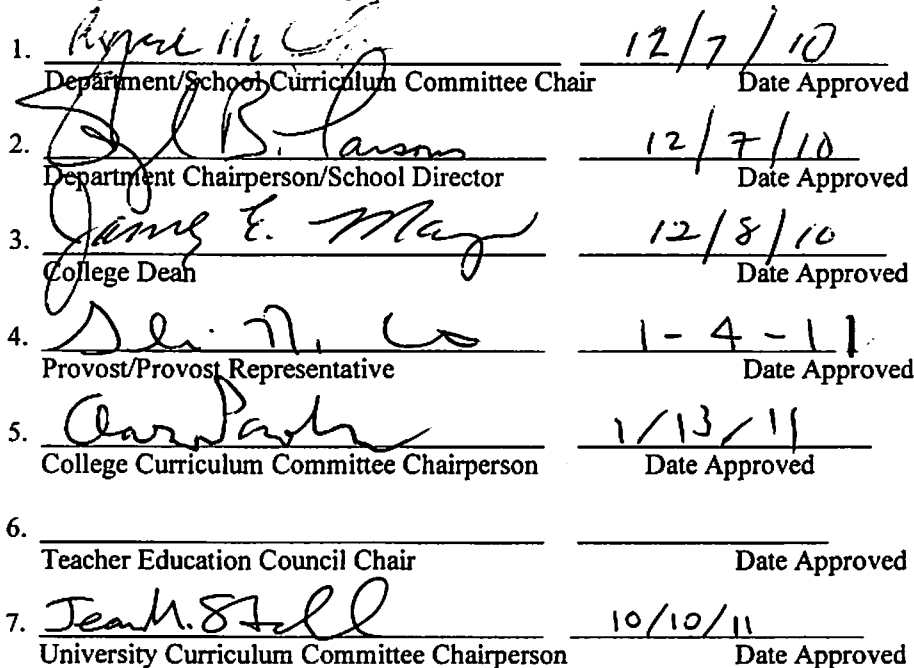 1. 12/7/10
Department/School Curriculum Committee Chair Date Approved
2. B. Parsons 12/7/10
Department Chairperson/School Director Date Approved
3. James E. 12/8/10
College Dean Date Approved
4. 1-4-11
Provost/Provost Representative Date Approved
5. 1/13/11
College Curriculum Committee Chairperson Date Approved
6.
Teacher Education Council Chair Date Approved
7. Jean M. 10/10/11
University Curriculum Committee Chairperson Date Approved